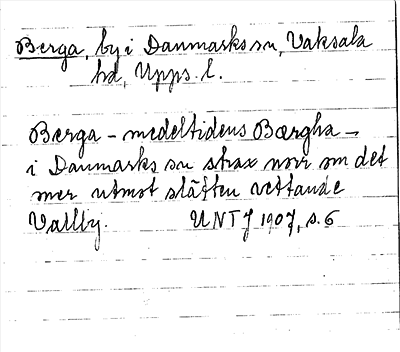 Berga, by i Danmarks sn, Vaksala
hd, Upps. l.
Berga – medeltidens Bærgha –
i Danmarks sn strax norr om det
mer utmot slätten vettande
Vallby. UNT J 1907, s. 6